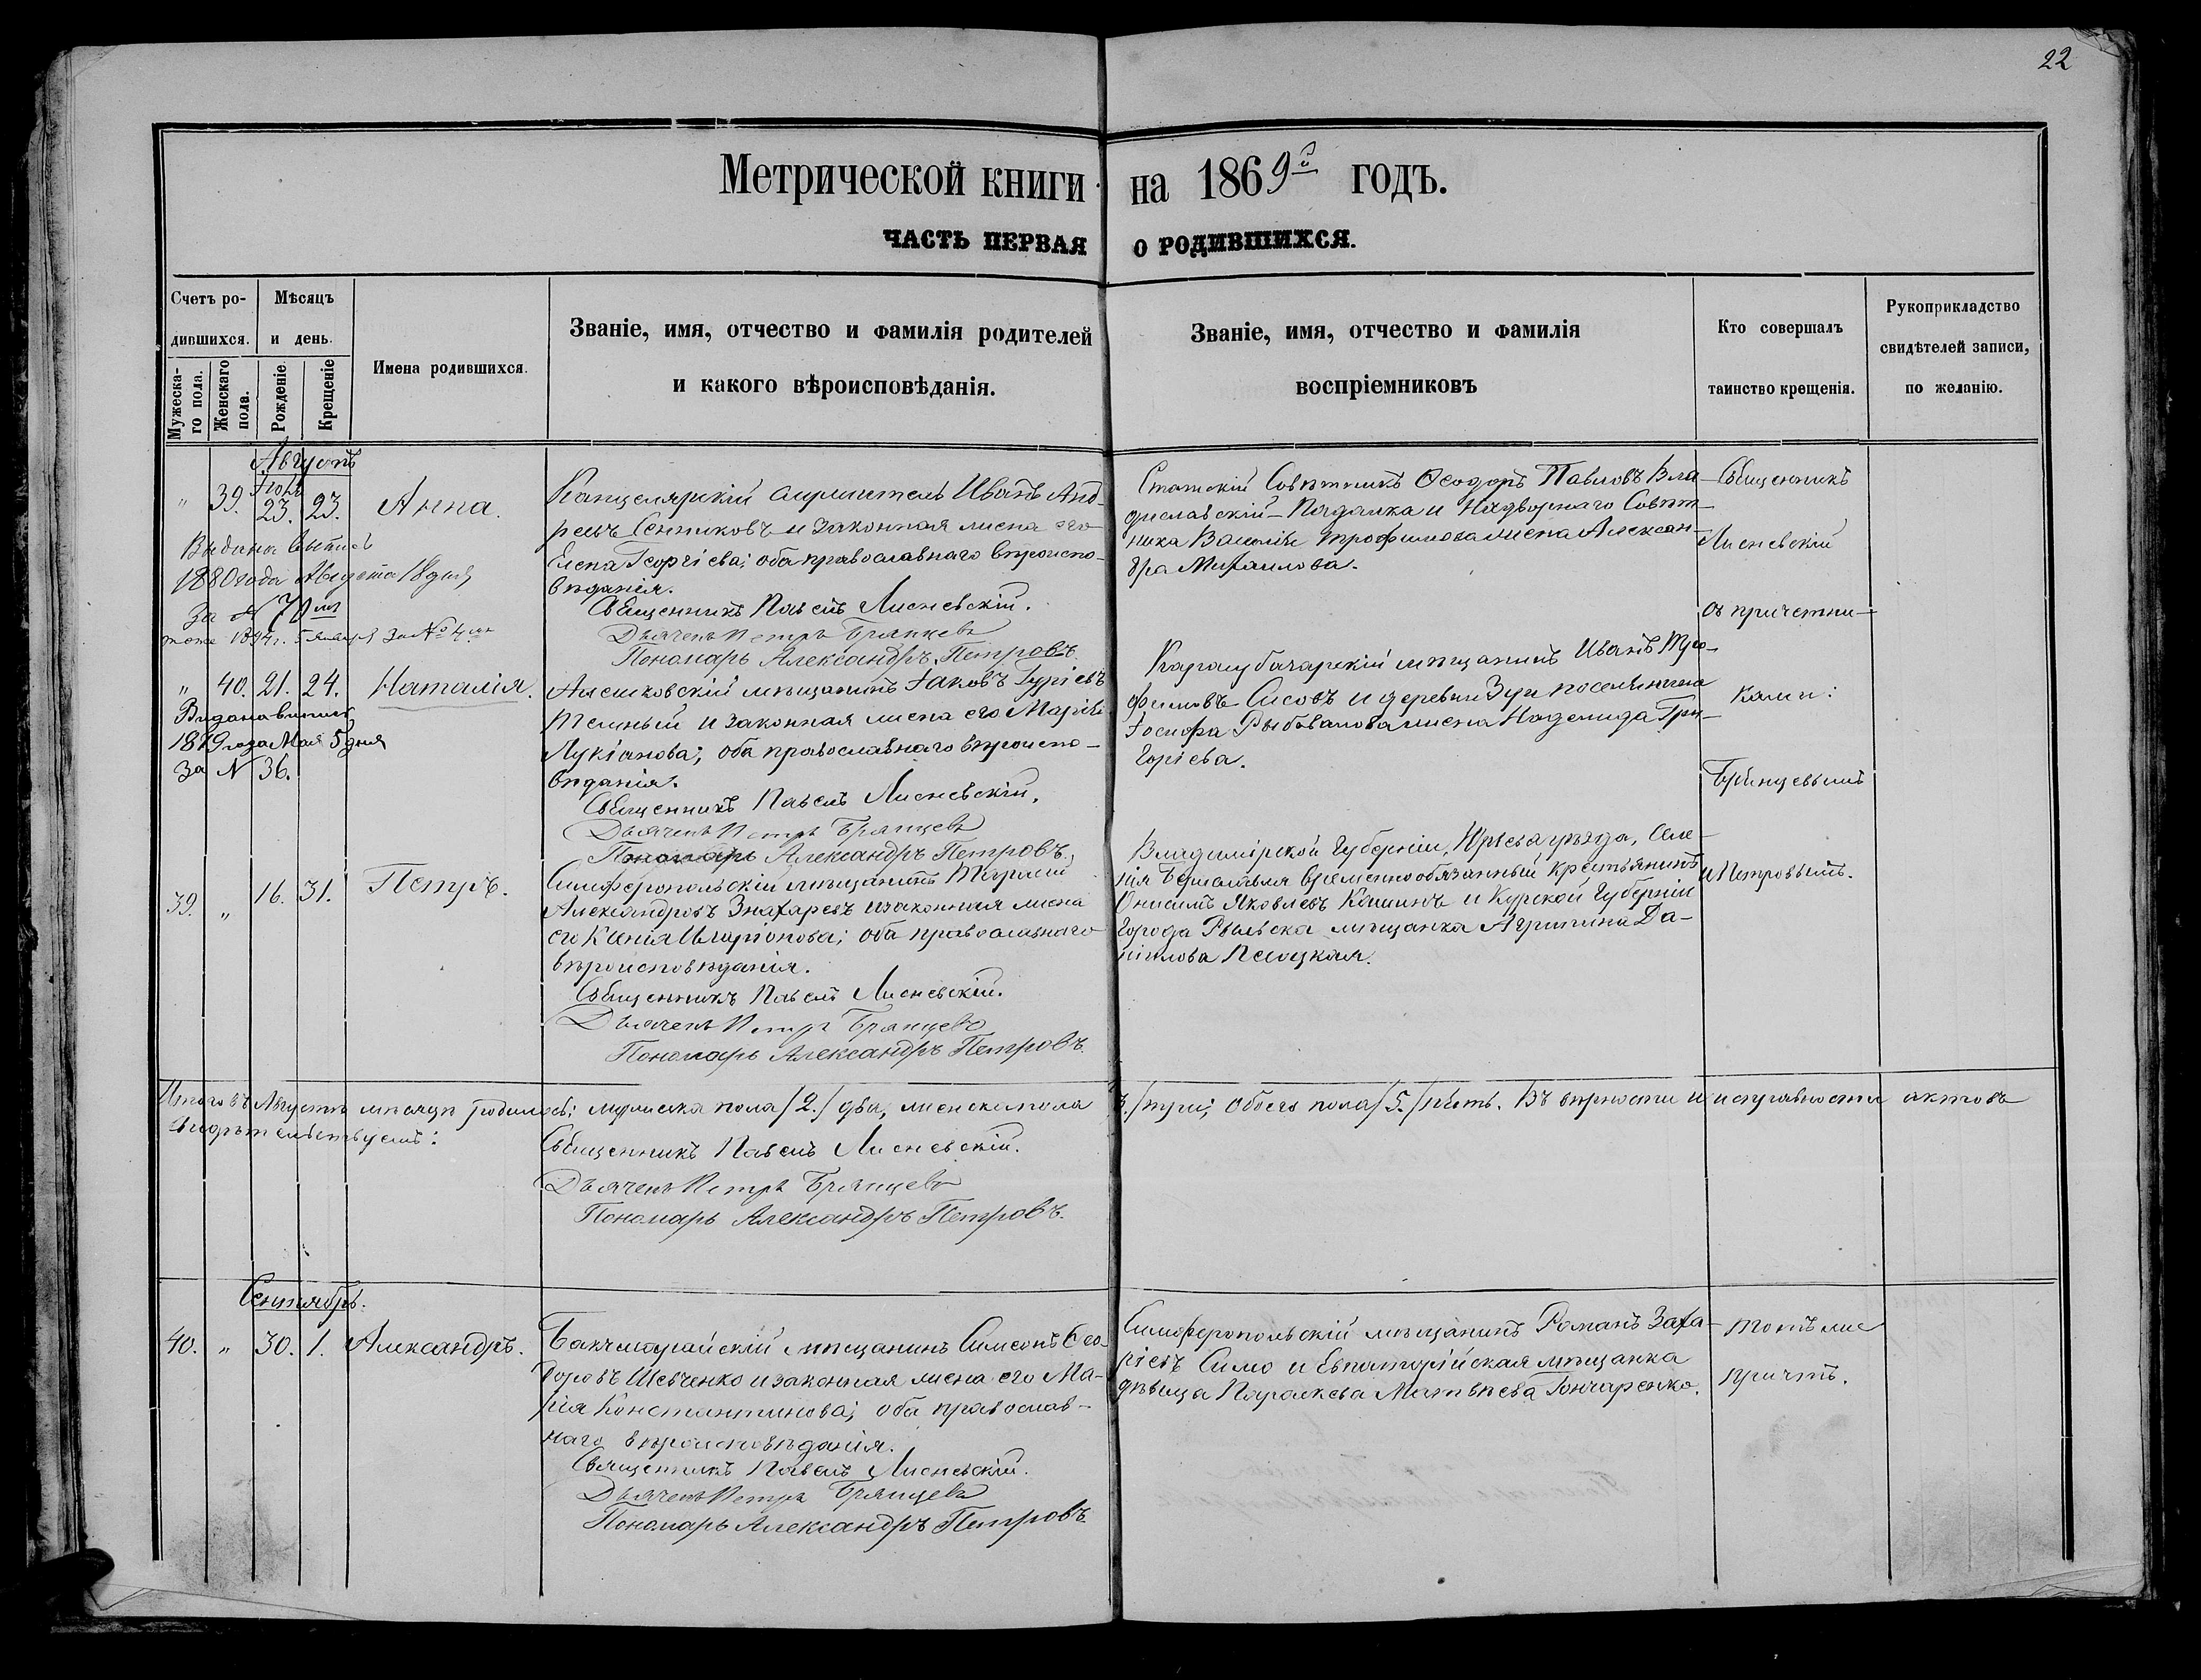 22
Метрической книги на 1869й годъ.
ЧАСТЬ ПЕРВАЯ О РОДИВШИХСЯ.
Счетъ ро-
дившихся.
Мужеска-
го пола.
Женскаго
пола.
Мѣсяцъ
и день.
Рожденіе.
Крещеніе
Имена родившихся.
Званіе, имя, отчество и фамилія родителей
и какого вѣроисповѣданія.
Званіе, имя, отчество и фамилія
воспріемниковъ
Кто совершалъ
таинство крещенія.
Рукоприкладство
свидѣтелей записи,
по желанію.
Августъ
Іюля
" 39. 23. 23. Анна.
Выдана выпись
1880 года Августа 18 дня
За N 70
тоже 1894 г. 5 января За № 4
Канцелярскій служитель Иванъ Анд-
реевъ Сентиковъ и законная жена его
Елена Георгіева; оба православнаго вѣроиспо-
вѣданія.
Священникъ Павелъ Лисневскій.
Дьячекъ Петръ Брянцевъ
Пономарь Александръ Петровъ.
Статскій Совѣтникъ Ѳеодоръ Павловъ Вла-
диславскій-Падалка и Надворнаго Совѣт-
ника Василія Трофимова жена Алексан-
дра Михаилова.
Священникъ
Лисневскій
съ причетни-
ками:
Брянцевымъ
и Петровымъ.
" 40. 21. 24. Наталія.
Видана выпись
1879 года Мая 5 дня
За N 36.
Алешковскій мѣщанинъ Іаковъ Гуріевъ
Темный и законная жена его Марія
Лукіанова; оба православнаго вѣроиспо-
вѣданія.
Священникъ Павелъ Лисневскій.
Дьячекъ Петръ Брянцевъ
Пономарь Александръ Петровъ.
Карасубазарскій мѣщанинъ Иванъ Тро-
фимовъ Сисовъ и деревни Зуи поселянина
Іосифа Рыбовалова жена Надежда Гри-
горіева.
39. " 16. 31. Петръ.
Симферопольскій мѣщанинъ
Александровъ Знахаревъ и законная жена
его Ксенія Иларіонова; оба православнаго
вѣроисповѣданія.
Священникъ Павелъ Лисневскій.
Дьячекъ Петръ Брянцевъ
Пономарь Александръ Петровъ.
Владимірской Губерніи, Юріева уѣзда, Селе-
нія временнообязанный крестьянинъ
Онисимъ Яковлевъ Кошинъ и Курской Губерніи
Города Рыльска мѣщанка Агрипина Да-
ніилова Песоцкая.
Итого въ Августѣ мѣсяцѣ родилось: мужеска пола /2./ два, женска пола 3./ три; обоего пола /5./ пять. Въ вѣрности и исправности актовъ
свидѣтельствуемъ:
Священникъ Павелъ Лисневскій.
Дьячекъ Петръ Брянцевъ
Пономарь Александръ Петровъ.
Сентябрь.
40. " 30. 1. Александръ.
Бахчисарайскій мѣщанинъ Симеонъ Ѳео-
доровъ Шевченко и законная жена его Ма-
рія Константинова; оба православ-
наго вѣроисповѣданія.
Священникъ Павелъ Лисневскій.
Дьячекъ Петръ Брянцевъ
Пономарь Александръ Петровъ.
Симферопольскій мѣщанинъ Романъ Заха-
ріевъ Симо и Евпаторійская мѣщанка
дѣвица Параскева Матвѣева Гончаренко.
тотъ же
причтъ.